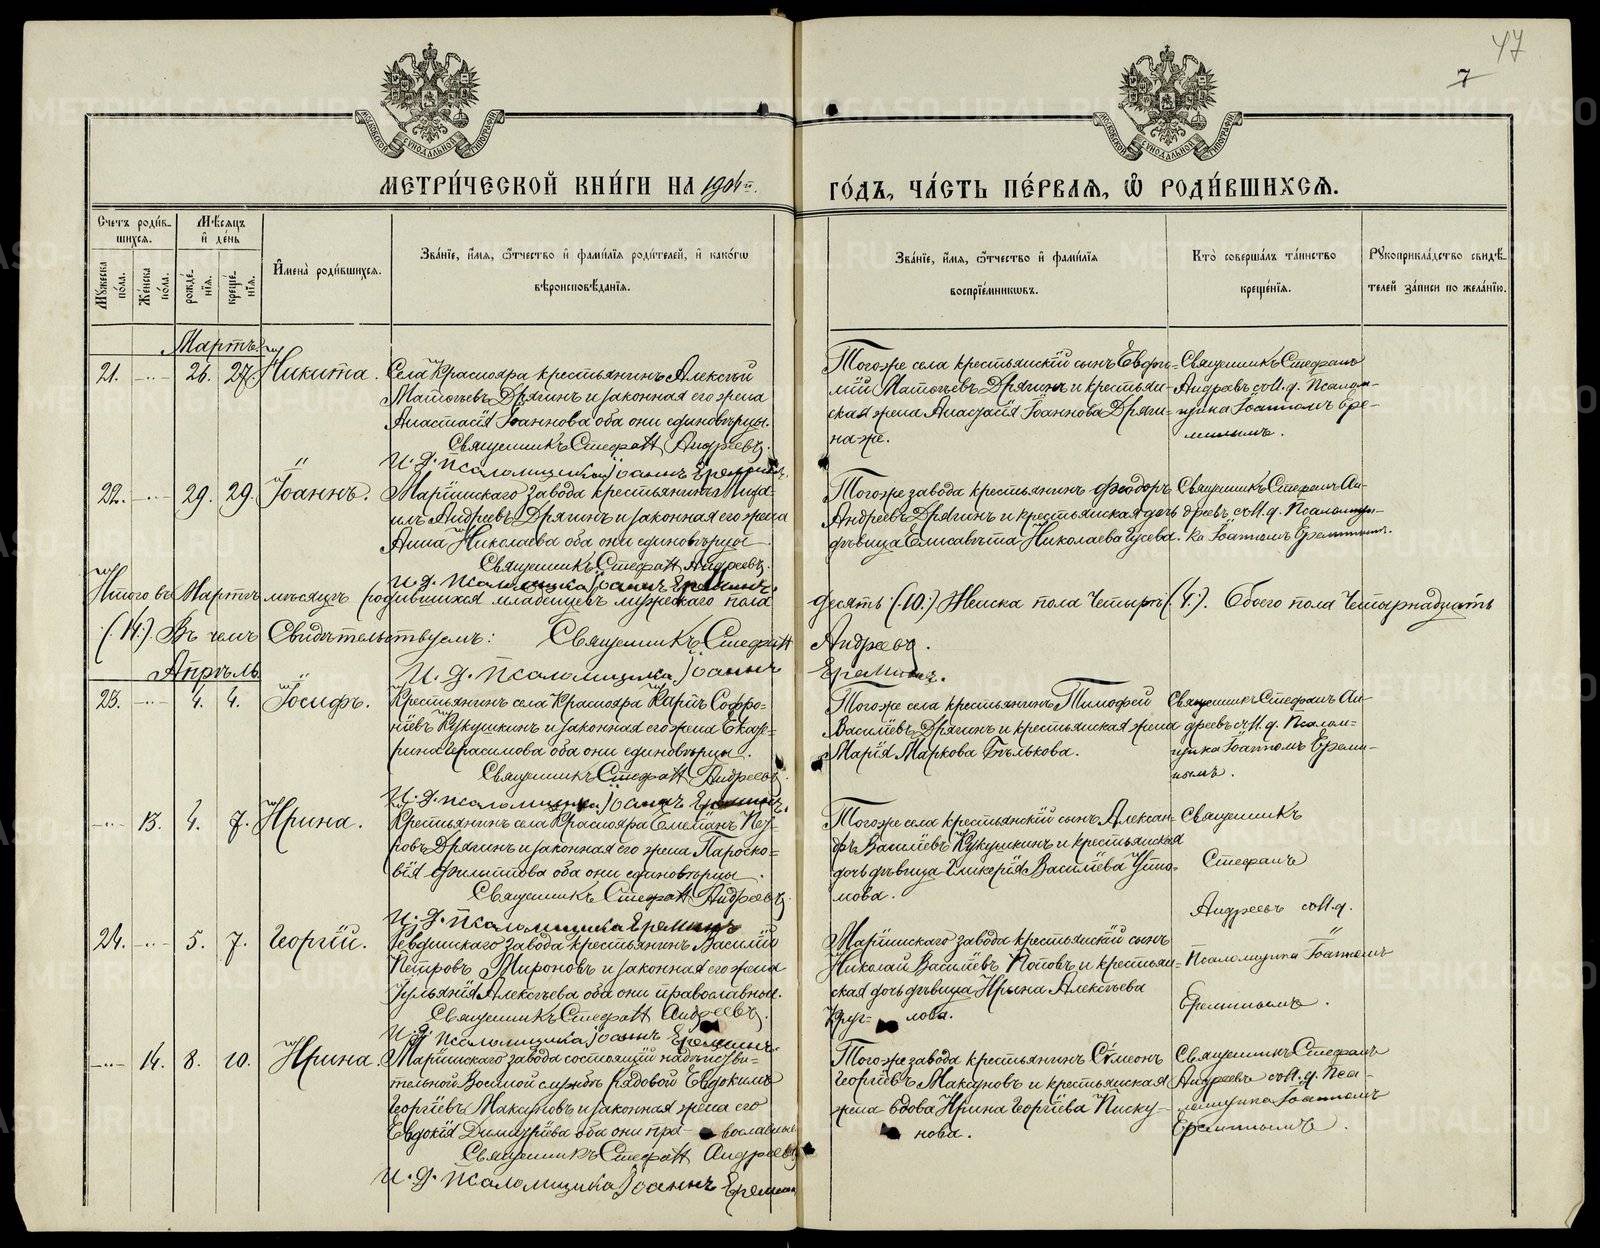 47
7
МОСКОВСКОЙ СУНОДАЛЬНОЙ ТИПОГРАФІИ
МОСКОВСКОЙ СУНОДАЛЬНОЙ ТИПОГРАФІИ
МЕТРИ́ЧЕСКОЙ КНИ́ГИ НА 1904й.
ГО́ДЪ, ЧА́СТЬ ПЕ́РВАЯ, Ѡ РОДИ́ВШИХСЯ.
Счетъ роди́в-
шихся.
Мѣ́сяцъ
и҆ де́нь
Му́жеска по́ла.
Же́нска по́ла.
рожде́-
нїя.
креще́-
нїя.
И҆мена̀ роди́вшихся.
Зва́нїе, и҆́мя, ѻ҆́тчество и҆ фами́лїя роди́телей, и҆ како́гѡ
вѣроисповѣ́данїя.
Зва́нїе, и҆́мя, ѻ҆́тчество и҆ фами́лїя
воспрїе́мникѡвъ.
Кто̀ соверша́лъ та́инство
креще́нїя.
Рꙋкоприкла́дство свидѣ́-
телей за́писи по жела́нїю.
Мартъ
21. -"- 26. 27. Никита.
Села Краснояра крестьянинъ Алексѣй
Матѳѣевъ Дрягинъ и законная его жена
Анастасія Іоаннова оба они единовѣрцы.
Священникъ Стефанъ Андреевъ.
И. д. псаломщика Іоаннъ Ереминъ.
Тогоже села крестьянскій сынъ Евфи-
мій Матѳѣевъ Дрягинъ и крестьян-
ская жена Анастасія Іоаннова Дряги-
на же.
Священникъ Стефанъ
Андреевъ съ И. д. Псалом-
щика Іоанномъ Ере-
минымъ.
22. -"- 29. 29. Іоаннъ.
Маріинскаго завода крестьянинъ Миха-
илъ Андреевъ Дрягинъ и законная его жена
Анна Николаева оба они единовѣрцы
Священникъ Стефанъ Андреевъ.
И. д. псаломщика Іоаннъ Ереминъ.
Тогоже завода крестьянинъ Ѳеодоръ
Андреевъ Дрягинъ и крестьянская дочь
дѣвица Елисавета Николаева Гусева.
Священникъ Стефанъ Ан-
дреевъ, съ И. д. Псаломщи-
ка Іоанномъ Ереминымъ.
Итого въ Мартѣ мѣсяцѣ родившихся младенцевъ мужескаго пола
десять (10.) Женска пола Четыре (4.). Обоего пола Четырнадцать
(14.) Въ чемъ Свидѣтельствуемъ: Священникъ Стефанъ
Андреевъ.
И. д. псаломщика Іоаннъ
Ереминъ.
Апрѣль
23. -"- 4. 4. Іосифъ.
Крестьянинъ села Краснояра Карпъ Софро-
ніевъ Кукушкинъ и законная его жена Екате-
рина Герасимова оба они единовѣрцы
Священникъ Стефанъ Андреевъ.
И. д. псаломщика Іоаннъ Ереминъ.
Тогоже села крестьянинъ Тимофей
Васильевъ Дрягинъ и крестьянская жена
Марія Маркова Бѣлькова.
Священникъ Стефанъ Ан-
дреевъ съ И. д. Псалом-
щика Іоанномъ Ереми-
нымъ.
-"- 13. 4. 7. Ирина.
Крестьянинъ села Краснояра Емеліанъ Пет-
ровъ Дрягинъ и законная его жена Параске-
вія Филиппова оба они единовѣрцы.
Священникъ Стефанъ Андреевъ
И. д. псаломщика Ереминъ
Тогоже села крестьянскій сынъ Алексан-
дръ Васильевъ Кукушкинъ и крестьянская
дочь дѣвица Гликерія Васильева
Священникъ
Стефанъ
Андреевъ съ И. д.
Псаломщика Іоанномъ
Ереминымъ.
24. -"- 5. 7. Георгій.
Ревдинскаго завода крестьянинъ Василій
Петровъ Мироновъ и законная его жена
Іуліанія Алексѣева оба они православные.
Священникъ Стефанъ Андреевъ.
И. д. псаломщика Іоаннъ Ереминъ.
Маріинскаго завода крестьянскій сынъ
Николай Васильевъ Поповъ и крестьян-
ская дочь дѣвица Ирина Алексѣева
Круг- лова.
-"- 14. 8. 10. Ирина.
Маріинскаго завода состоящій на дѣйстви-
тельной Военной службѣ Рядовой Евдокимъ
Георгіевъ Макуновъ и законная жена его
Евдокія Димитріева оба они пра- вославные
Священникъ Стефанъ Андреевъ
И. д. псаломщика Іоаннъ Ереминъ
Тогоже завода крестьянинъ Сѵмеонъ
Георгіевъ Макуновъ и крестьянская
жена вдова Ирина Георгіева Писку-
нова.
Священникъ Стефанъ
Андреевъ съ И. д. Пса-
ломщика Іоанномъ
Ереминымъ.
METRIKI.GASO-URAL.RU